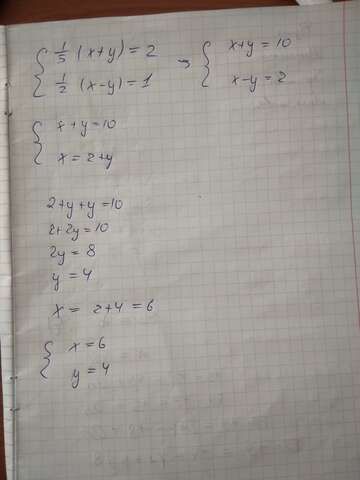 { 1/5 (x+y) = 2 → { x+y = 10
1/2 (x-y) = 1 x-y = 2
{ x+y=10
x = 2+y
2+y+y=10
2+2y=10
2y = 8
y = 4
x = 2+4 = 6
{ x=6
y=4